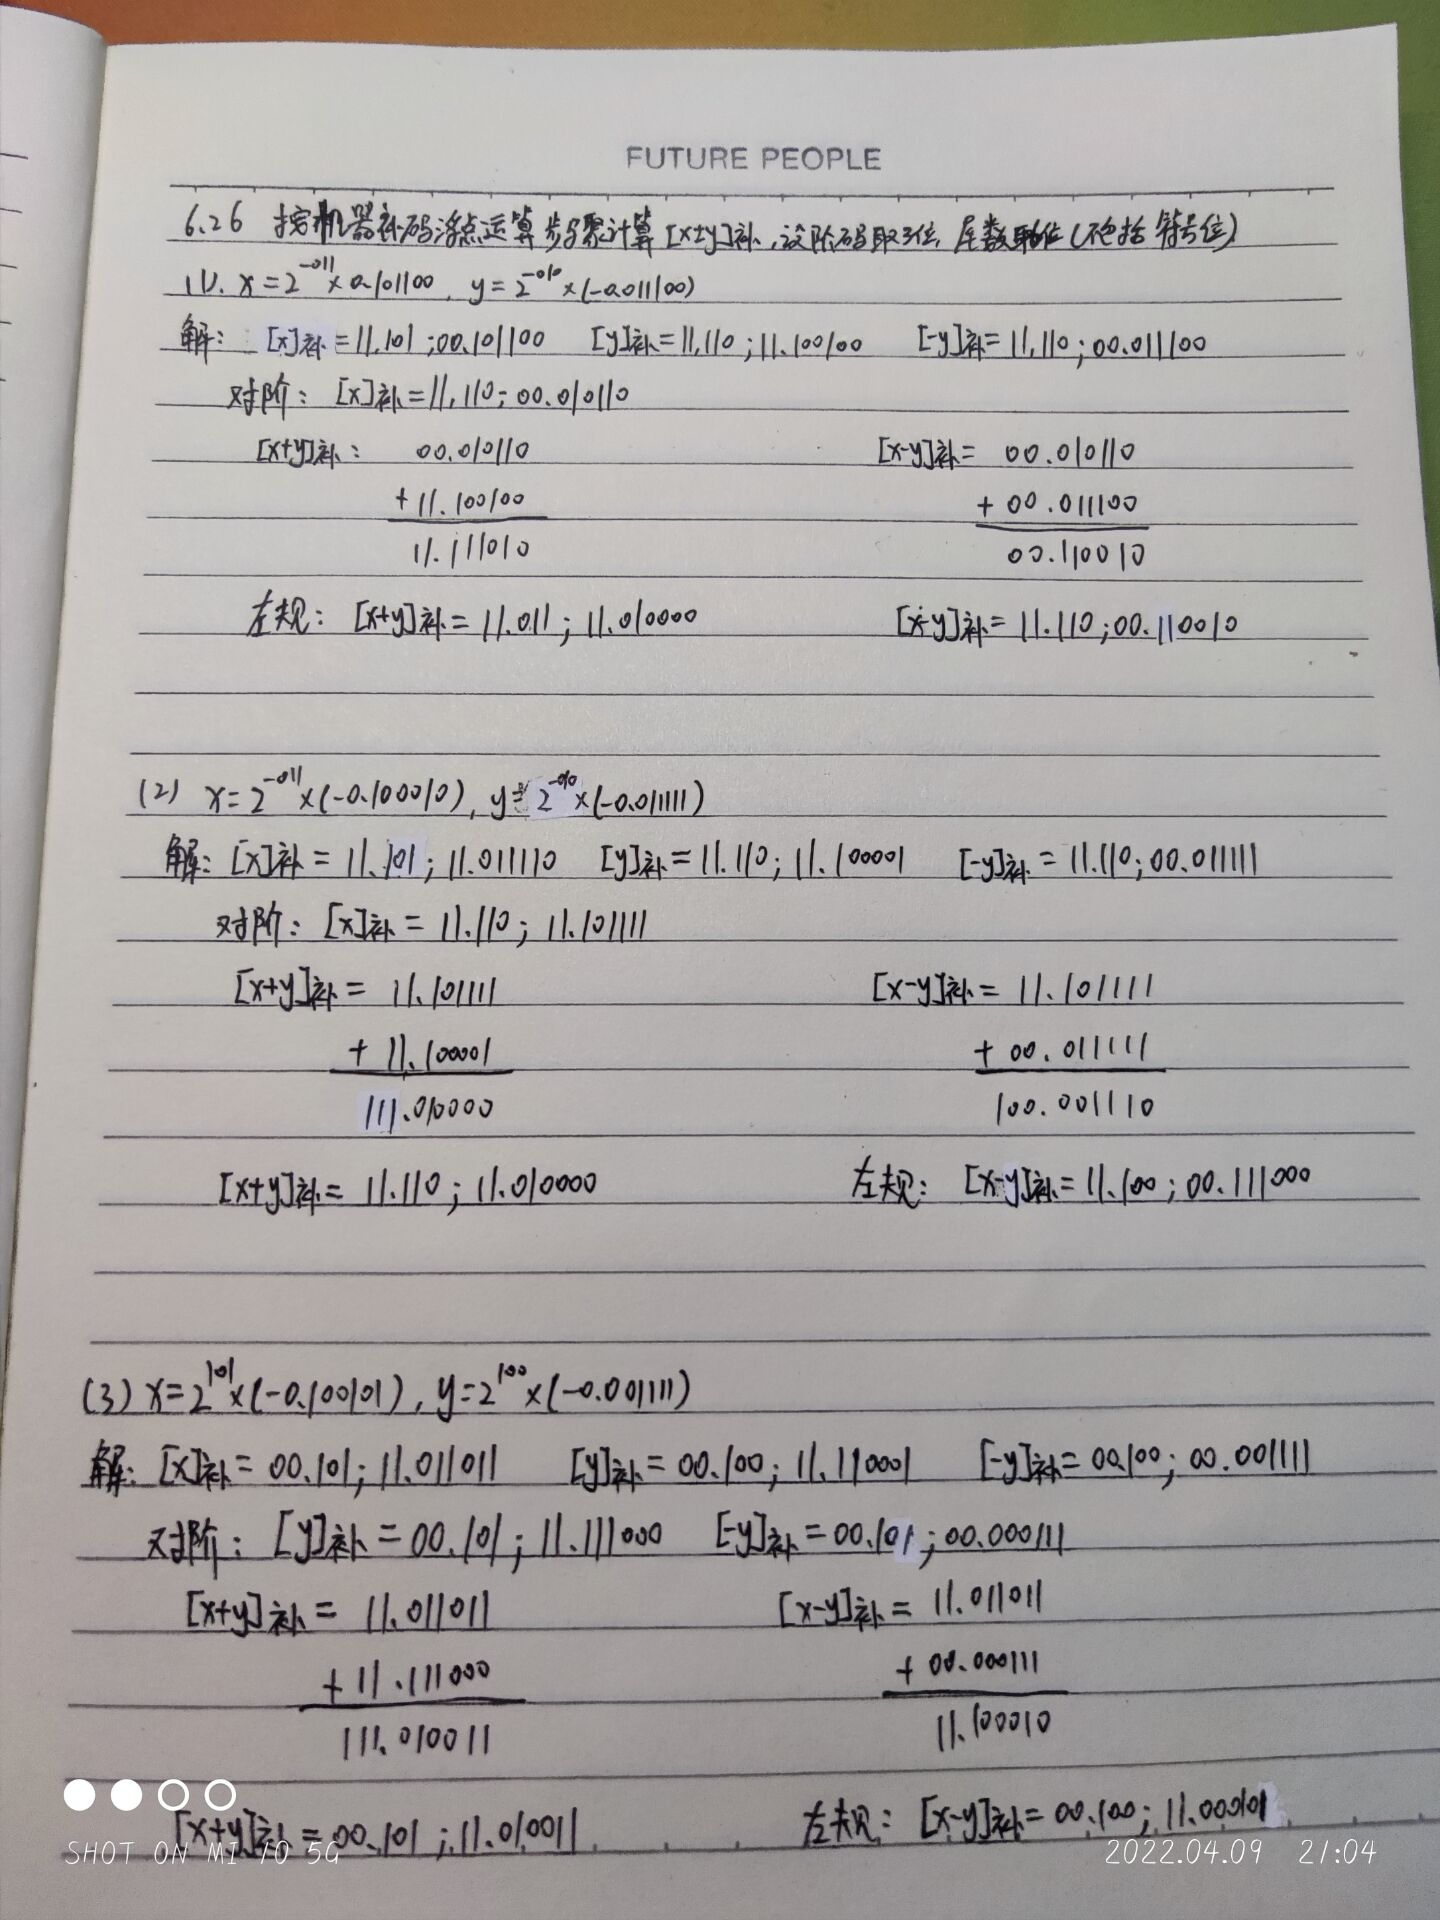 FUTURE PEOPLE
6.26 按机器补码浮点运算步骤计算[x±y]补,设阶码取3位,尾数取6位(不包括符号位)
(1). x=2^-011×0.101100, y=2^-010×(-0.011100)
解: [x]补=11,101;00.101100 [y]补=11,110;11.100100 [-y]补=11,110;00.011100
对阶: [x]补=11,110;00.010110
[x+y]补: 00.010110 [x-y]补= 00.010110
+ 11.100100 + 00.011100
11.111010 00.110010
左规: [x+y]补=11.011;11.010000 [x-y]补=11.110;00.110010
(2) x=2^-011×(-0.100010), y=2^-010×(-0.011111)
解: [x]补=11.101;11.011110 [y]补=11.110;11.100001 [-y]补=11.110;00.011111
对阶: [x]补=11.110;11.101111
[x+y]补= 11.101111 [x-y]补= 11.101111
+ 11.100001 + 00.011111
111.010000 100.001110
[x+y]补=11.110;11.010000 左规: [x-y]补=11.100;00.111000
(3) x=2^101×(-0.100101), y=2^100×(-0.001111)
解: [x]补=00.101;11.011011 [y]补=00.100;11.110001 [-y]补=00.100;00.001111
对阶: [y]补=00.101;11.111000 [-y]补=00.101;00.000111
[x+y]补= 11.011011 [x-y]补= 11.011011
+ 11.111000 + 00.000111
111.010011 11.100010
[x+y]补=00.101;11.010011 左规: [x-y]补=00.100;11.000101
SHOT ON MI 10 5G 2022.04.09 21:04